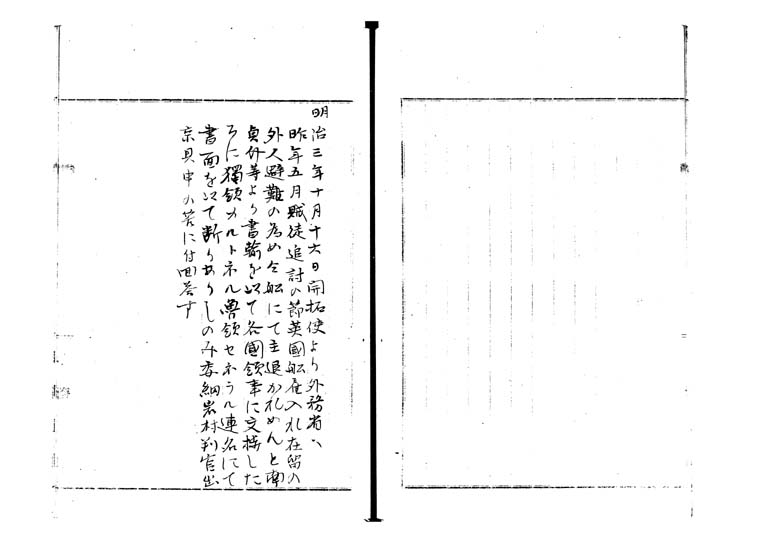 明治三年十月十六日開拓使より外務省へ
昨年五月賊徒追討の節英國船雇入れ在留の
外人避難の為め仝船にて立退かれめんと南
貞介等より書翰を以て各國領事に文移した
るに獨領カルトネル魯領セネラル連名にて
書面を以て断りありしのみ委細岩村判官出
京具申の筈に付回答す